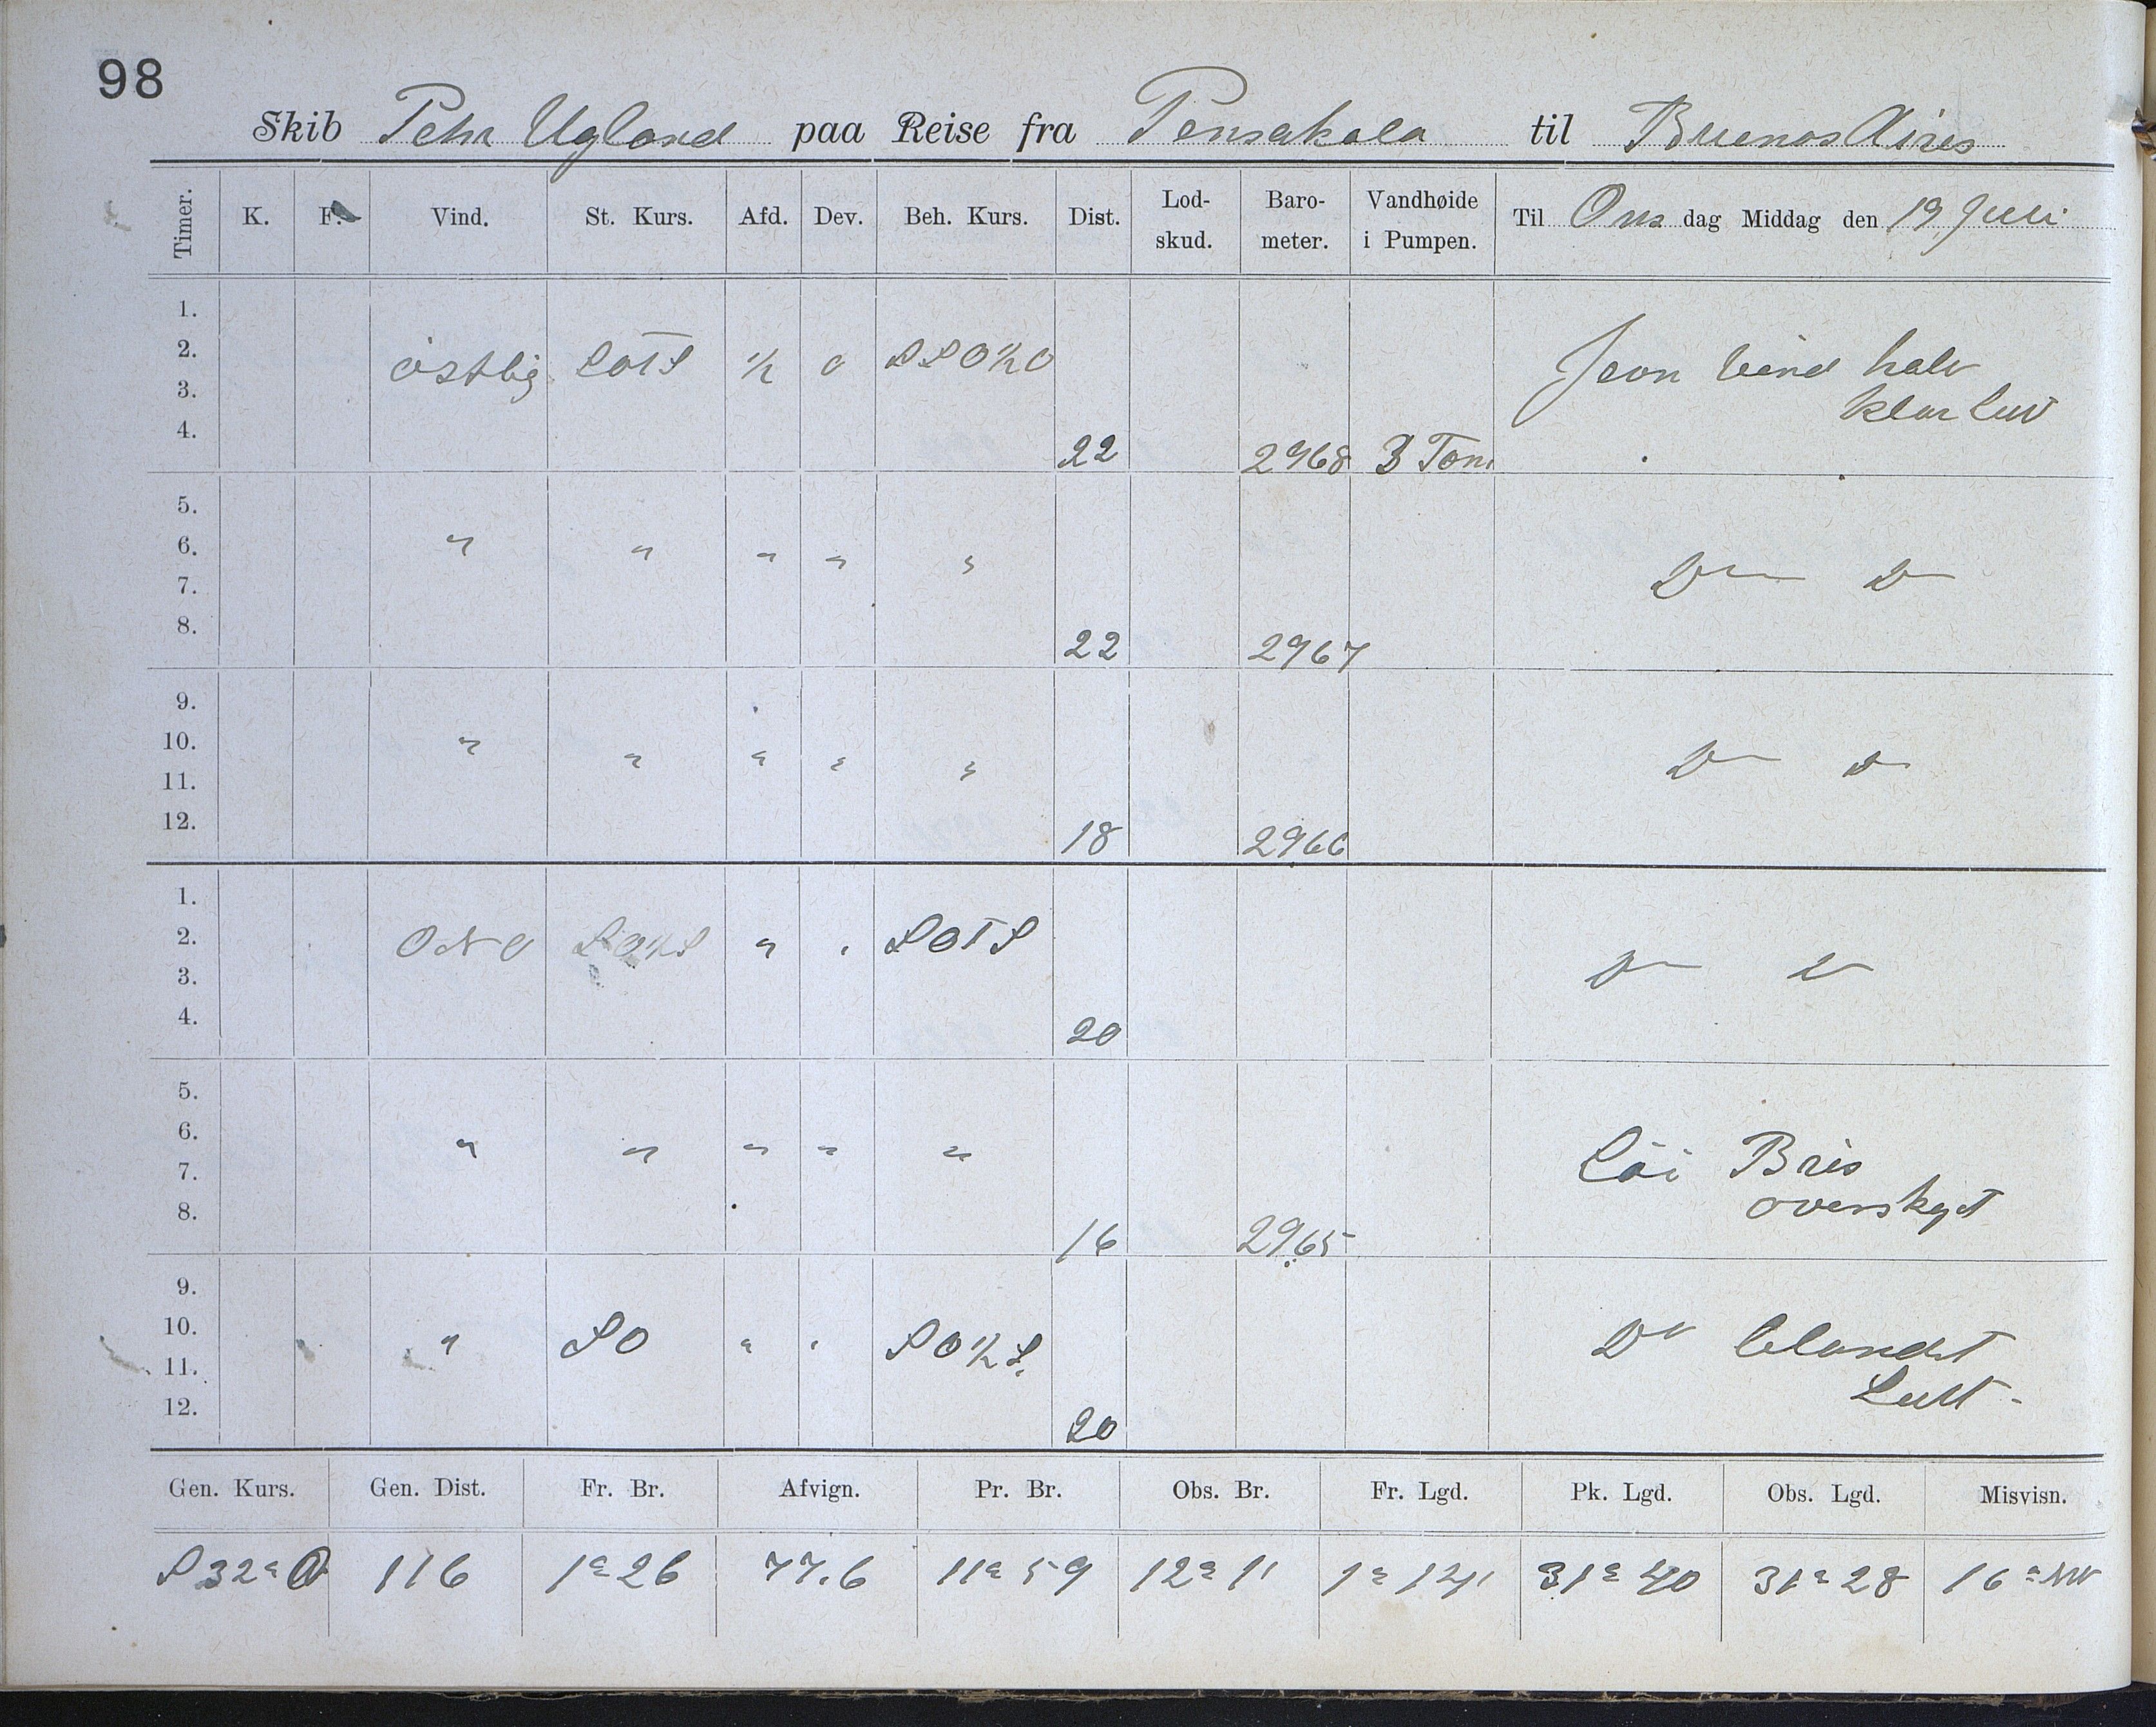 98
Skib Pehr Ugland paa Reise fra Pensakola til Buenos Aires
Timer. K. F. Vind. St. Kurs. Afd. Dev. Beh. Kurs. Dist. Lod-skud. Baro-meter. Vandhøide i Pumpen. Til Ons dag Middag den 19 Juli
1.
2. östlig SOTS 1/2 0 SSO½O Jevn vind halv
3. klar Luv
4. 22 2968 3 Tom
5.
6. " " " " " Do Do
7.
8. 22 2967
9.
10. " " " " " Do Do
11.
12. 18 2966
1.
2. ONO SO½S " " SOTS Do Do
3.
4. 20
5.
6. " " " " " Löi Bris
7. overskyt
8. 16 2965
9.
10. " SO " " SO½S. Do blandet
11. Luft -
12. 20
Gen. Kurs. Gen. Dist. Fr. Br. Afvign. Pr. Br. Obs. Br. Fr. Lgd. Pk. Lgd. Obs. Lgd. Misvisn.
S32°O 116 1° 26 77.6 11° 59 12° 1' 1° 14' 31° 40 31° 28 16°